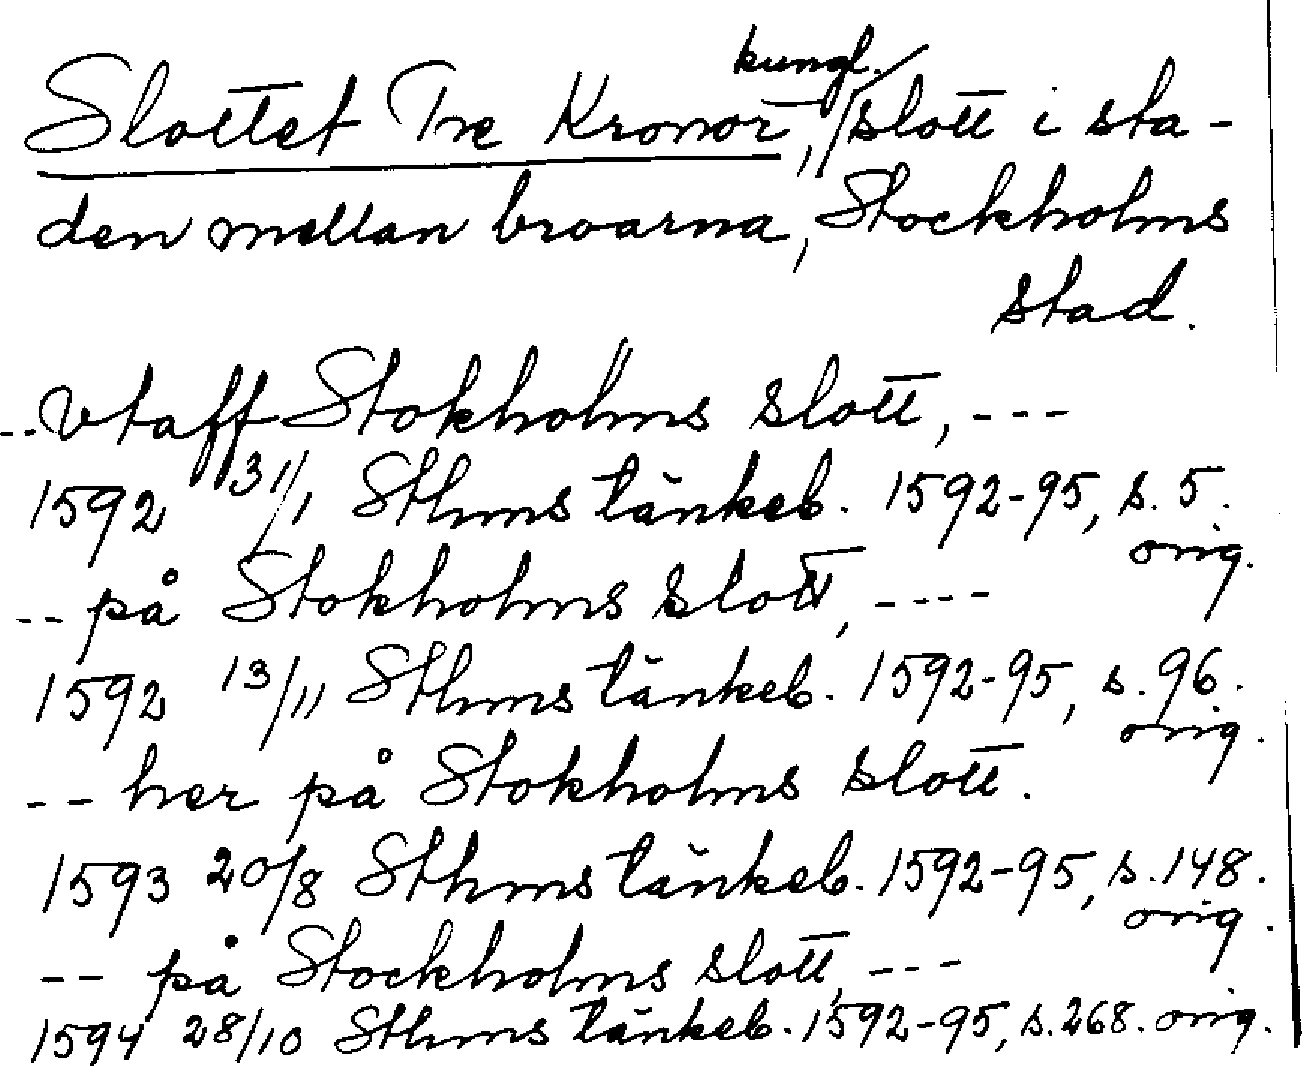 Slottet Tre Kronor, kungl. slott i sta-
den mellan broarna, Stockholms
stad.
-- vtaff Stokholms slott, ---
1592 31/1 Sthms tänkeb. 1592-95, s. 5.
orig.
-- på Stokholms slott, ----
1592 13/11 Sthms tänkeb. 1592-95, s. 96.
orig.
-- her på Stokholms slott.
1593 20/8 Sthms tänkeb. 1592-95, s. 148.
orig.
-- på Stockholms slott, ---
1594 28/10 Sthms tänkeb. 1592-95, s. 268. orig.